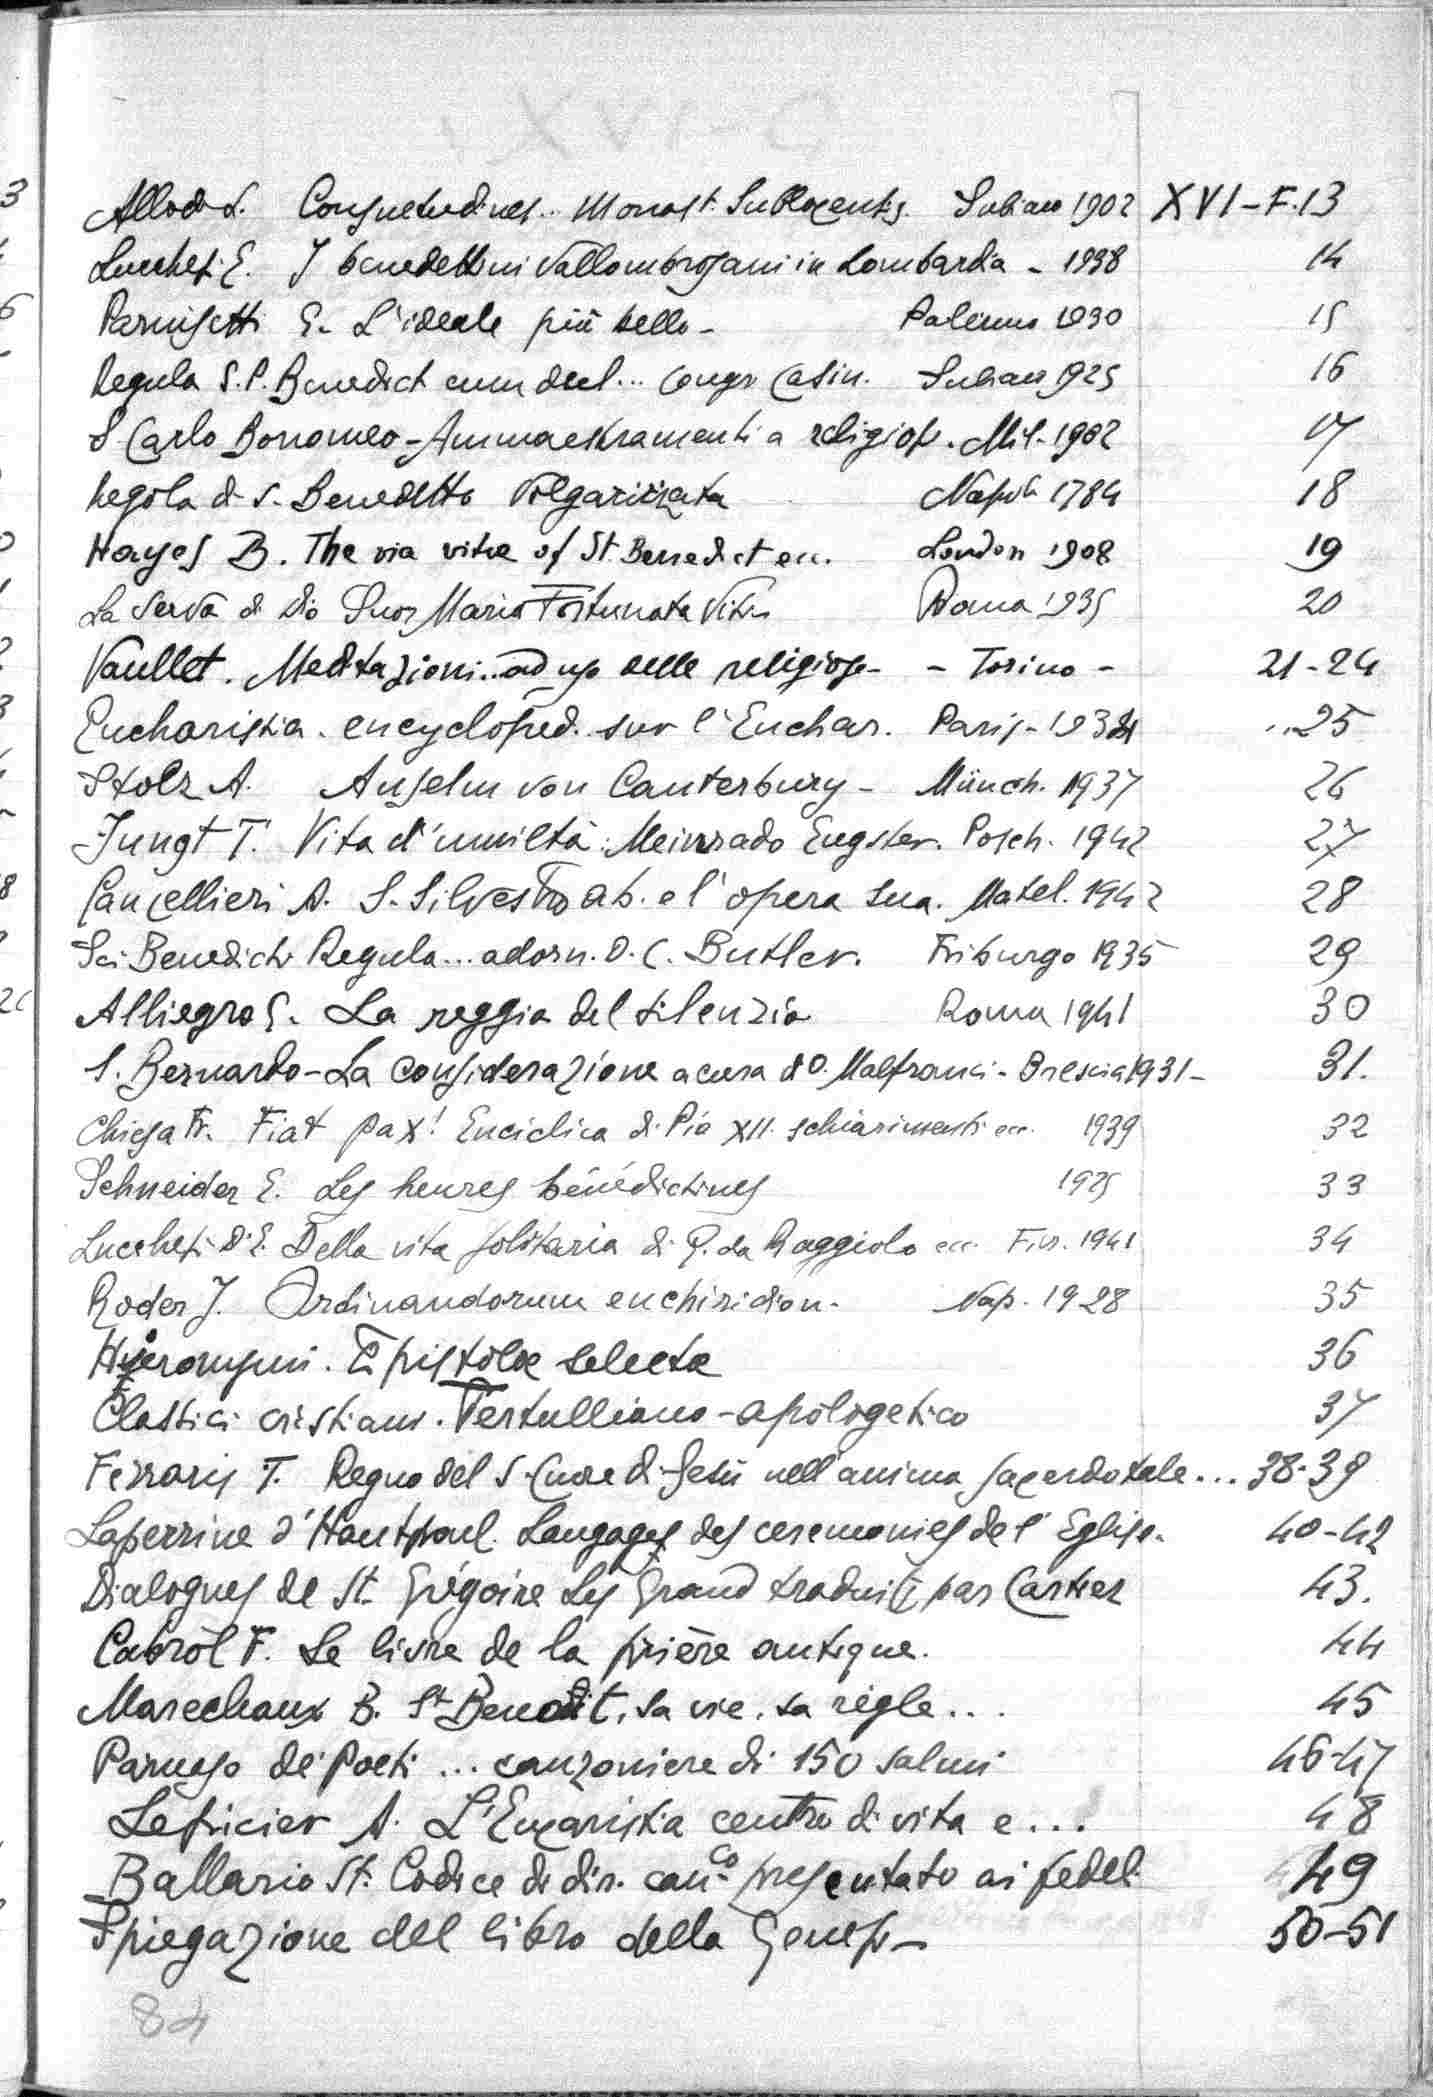 XVI-Q
Allodi L. Consuetudines.. Monast. Sublacensis. Subiaco 1902 XVI-F.13
Lucchesi E. I benedettini Vallombrosani in Lombardia - 1938 14
Parnisetti G. L'ideale più bello - Palermo 1930 15
Regula S.P. Benedicti cum decl... Congr Casin. Subiaco 1925 16
S Carlo Borromeo - Ammaestramenti a religiose. Mil - 1902 17
Regola di S. Benedetto Volgarizzata Napoli 1784 18
Hayes B. The via vitae of St. Benedict ecc. London 1908 19
La Serva di Dio Suor Maria Fortunata Viti Roma 1935 20
Vaullet. Meditazioni.. ad uso delle religiose - - Torino - 21-24
Eucharistia. encycloped. sur l'Euchar. Paris - 1934 ..25
Stolz A. Anselm von Canterbury - Münch. 1937 26
Jungt T. Vita d'umiltà: Meinrado Eugster. Posch. 1942 27
Cancellieri A. S. Silvestro ab. e l'opera sua. Matel. 1942 28
Sci Benedicti Regula... adorn. D. C. Butler. Friburgo 1935 29
Alliegro G. La reggia del silenzio Roma 1941 30
S. Bernardo - La Considerazione a cura di D. Malfranci - Brescia 1931 - 31.
Chiesa Fr. Fiat pax! Enciclica di Pio XII. schiarimenti ecc. 1939 32
Schneider E. Les heures bénédictines 1925 33
Lucchesi D. E. Della vita solitaria di G. da Raggiolo ecc. Fir. 1941 34
Roder J. Ordinandorum enchiridion. Nap. 1928 35
Hieronymi. Epistolae selectae 36
Classici cristiani. Tertulliano - apologetico 37
Ferraris T. Regno del S. Cuore di Gesù nell'anima sacerdotale... 38-39
Laperrine d'Hautpoul. Langages des ceremonies de l'Eglise. 40-42
Dialogues de St Grégoire Les Grand traduits par Cartier 43.
Cabrol F. Le livre de la prière antique. 44
Marechaux B. St Benoît, sa vie, sa règle... 45
Parnaso dei poeti ... canzoniere di 150 salmi 46-47
Lepicier A. L'Eucaristia centro di vita e... 48
Ballario St. Codice di dir. canco presentato ai fedeli 49
Spiegazione del libro della Genesi - 50-51
84